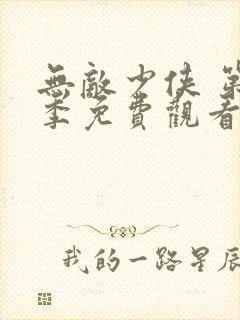 無敵少俠 第
季免費觀看
我的一路星辰